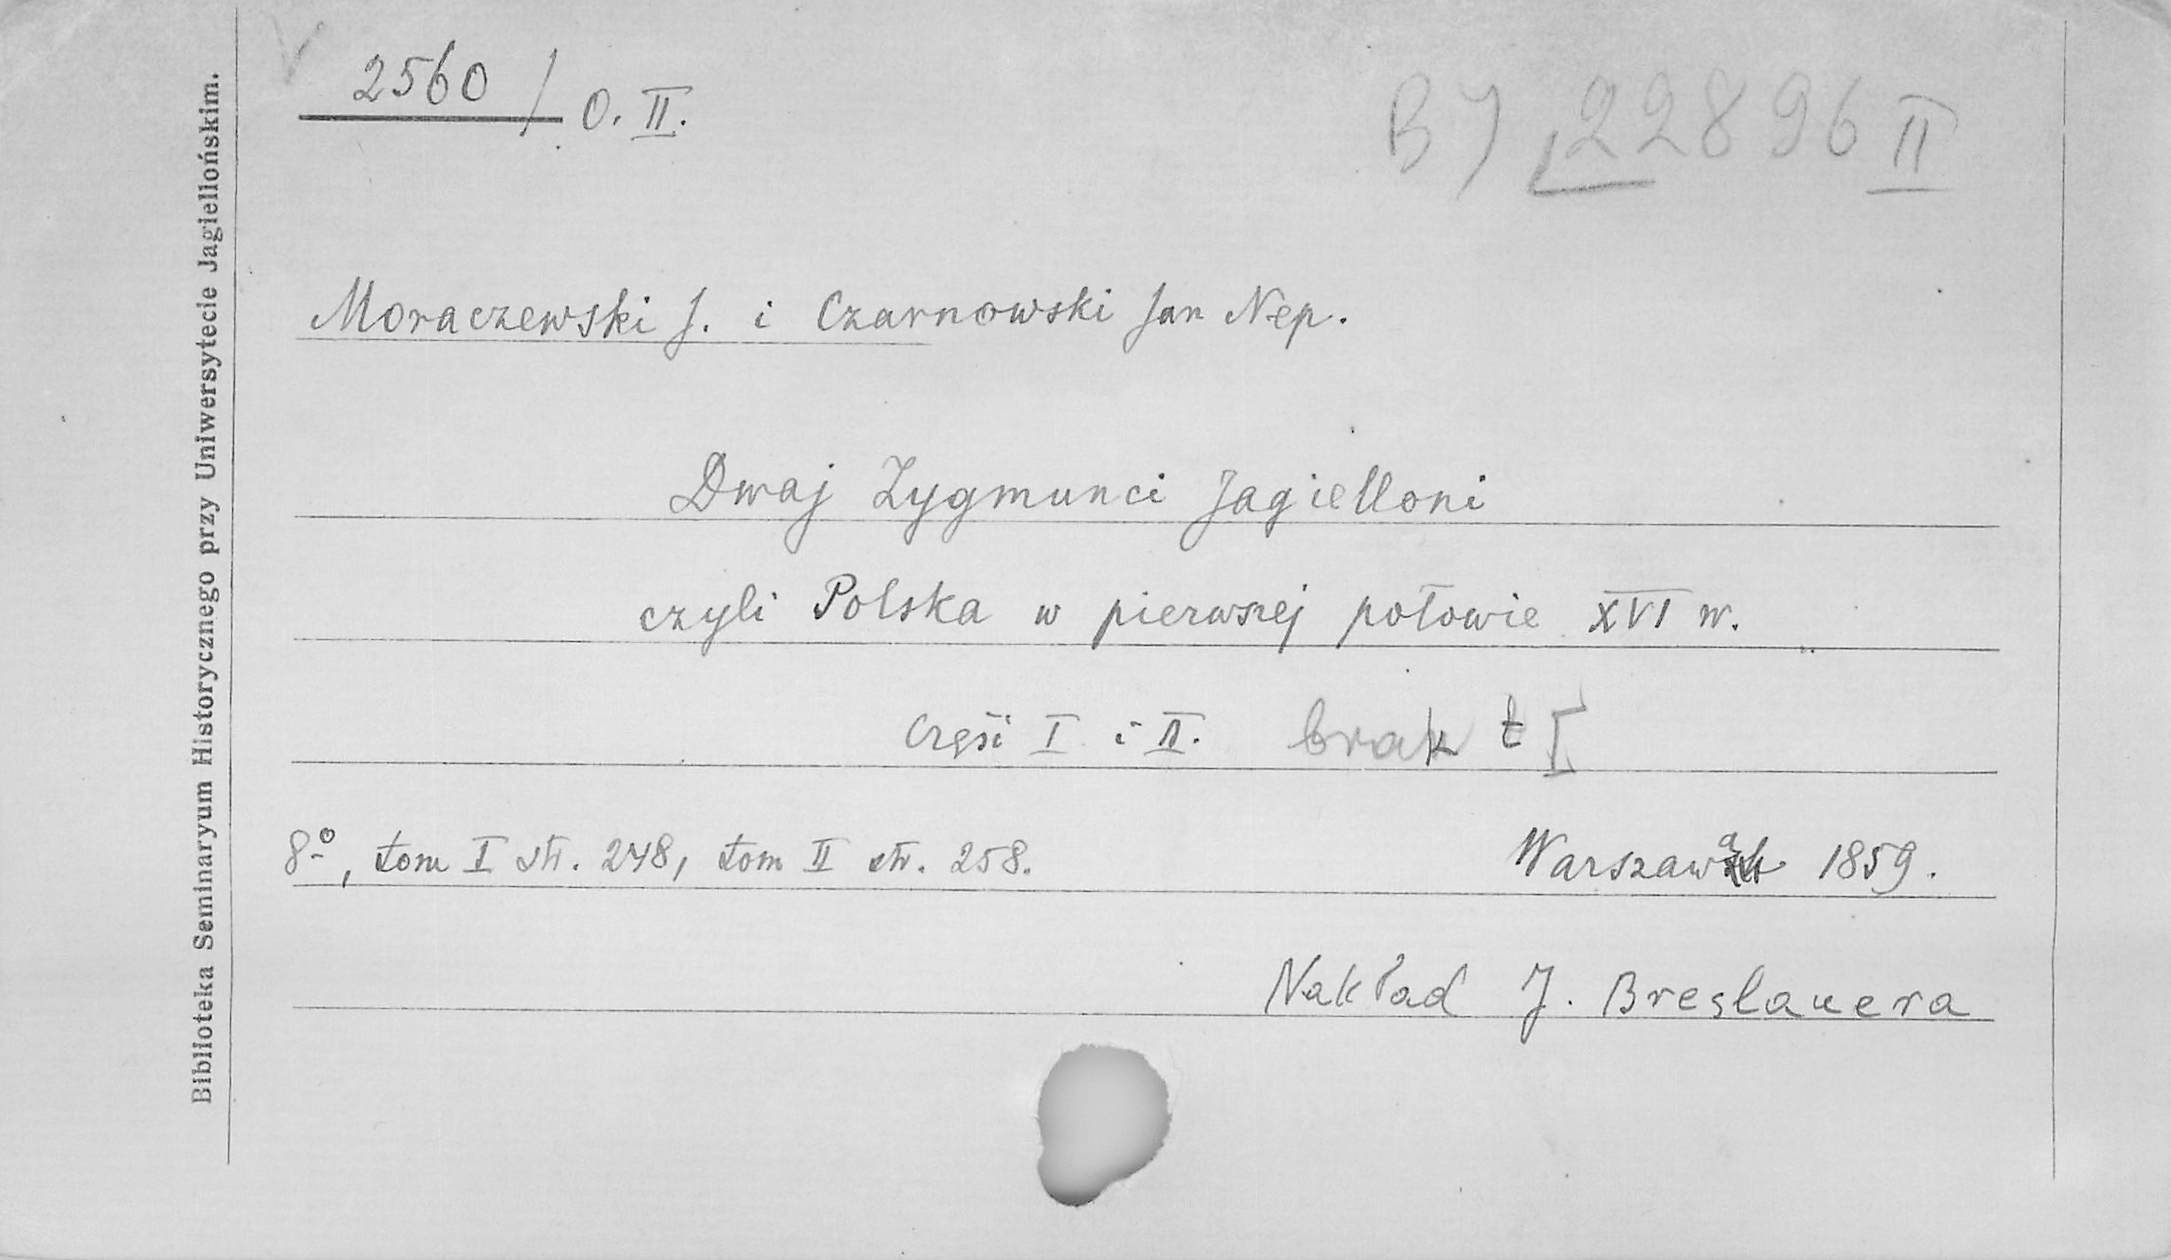 Biblioteka Seminaryum Historycznego przy Uniwersytecie Jagiellońskim.
2560 / O. II.
BJ 22896 II
Moraczewski J. i Czarnowski Jan Nep.
Dwaj Zygmunci Jagielloni
czyli Polska w pierwszej połowie XVI w.
Części I i II. brak t I
8º, tom I str. 248, tom II str. 258. Warszawa 1859.
Nakład J. Breslauera